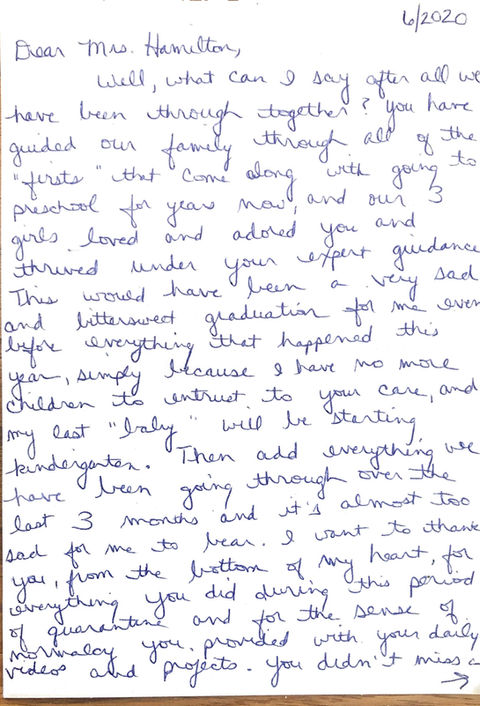 6/2020
Dear Mrs. Hamilton,
Well, what can I say after all we
have been through together? You have
guided our family through all of the
"firsts" that come along with going to
preschool for years now, and our 3
girls loved and adored you and
thrived under your expert guidance
This would have been a very sad
and bittersweet graduation for me even
before everything that happened this
year, simply because I have no more
children to entrust to your care, and
my last "baby" will be starting
kindergarten. Then add everything we
have been going through over the
last 3 months and it's almost too
sad for me to bear. I want to thank
you, from the bottom of my heart, for
everything you did during this period
of quarantine and for the sense of
normalcy you provided with your daily
videos and projects. You didn't miss a
→